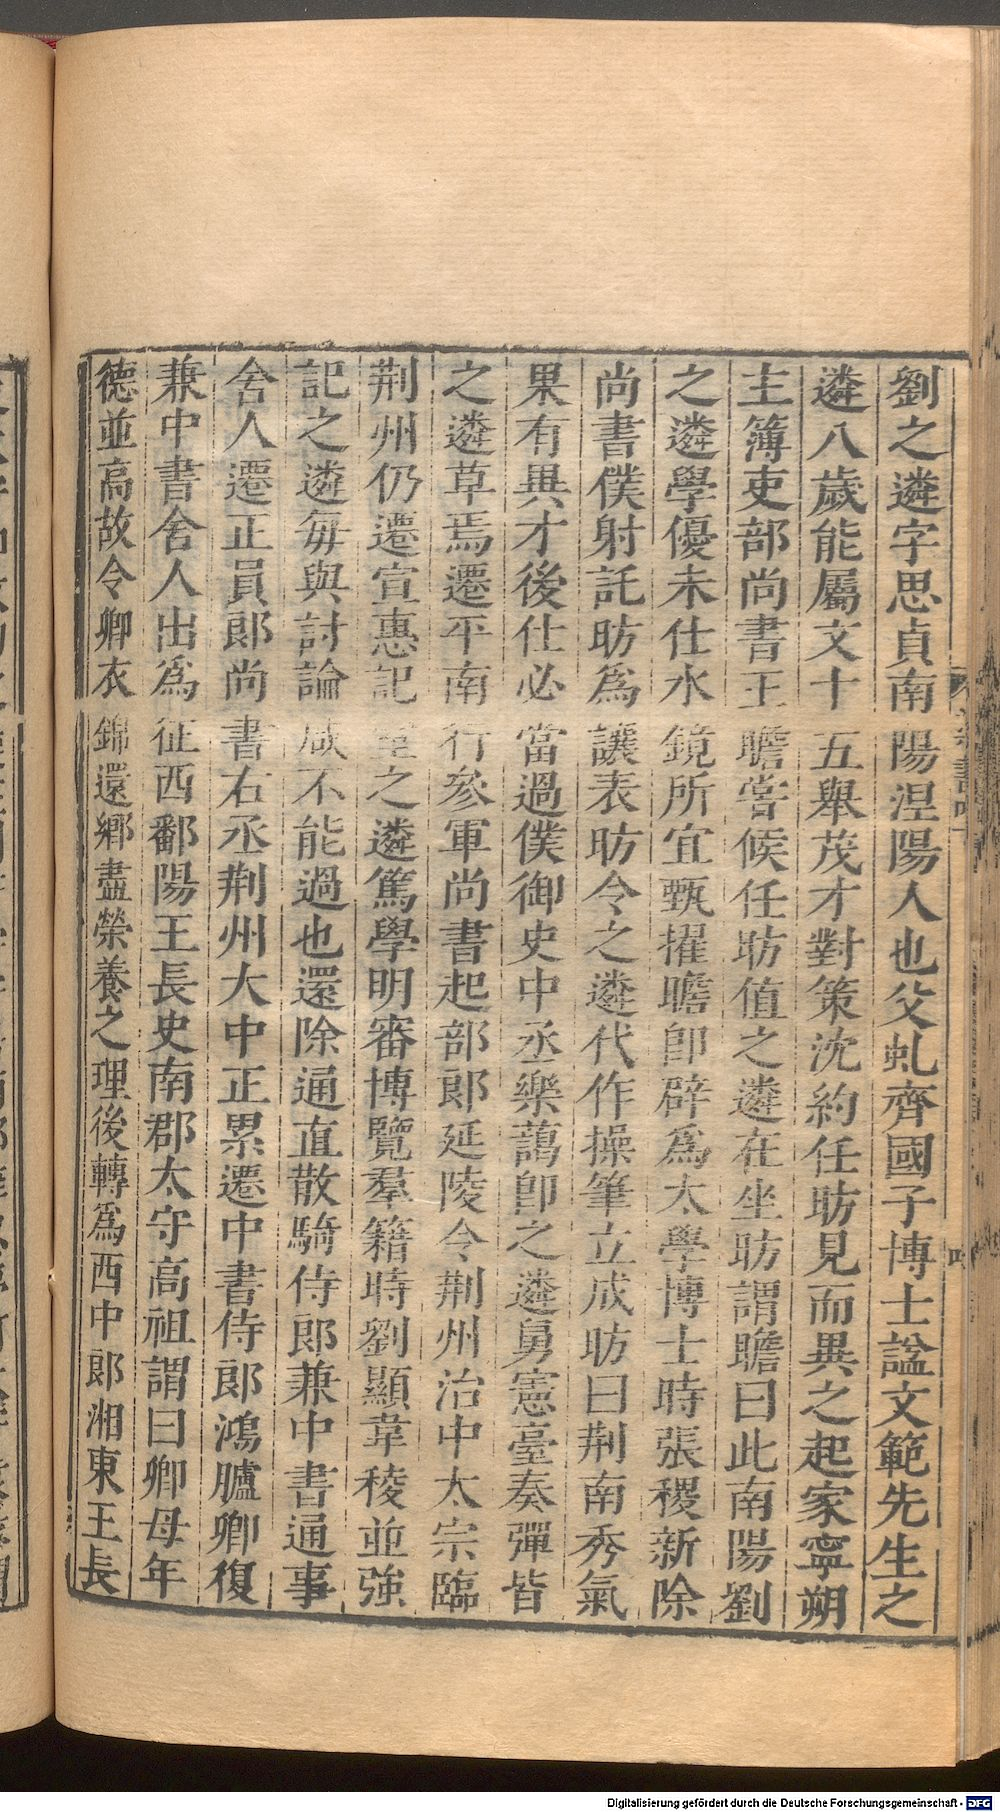 劉之遴字思貞南陽涅陽人也父虬齊國子博士謚文範先生之
遴八歲能屬文十五舉茂才對策沈約任昉見而異之起家寧朔
主簿吏部尚書王瞻嘗候任昉值之遴在坐昉謂瞻曰此南陽劉
之遴學優未仕水鏡所宜甄擢瞻卽辟爲太學博士時張稷新除
尚書僕射託昉爲讓表昉令之遴代作操筆立成昉曰荆南秀氣
果有異才後仕必當過僕御史中丞樂藹卽之遴舅憲臺奏彈皆
之遴草焉遷平南行參軍尚書起部郎延陵令荆州治中太宗臨
荆州仍遷宣惠記室之遴篤學明審博覽羣籍時劉顯韋稜並強
記之遴每與討論咸不能過也還除通直散騎侍郎兼中書通事
舍人遷正員郎尚書右丞荆州大中正累遷中書侍郎鴻臚卿復
兼中書舍人出爲征西鄱陽王長史南郡太守高祖謂曰卿母年
德並高故令卿衣錦還鄉盡榮養之理後轉爲西中郎湘東王長
Digitalisierung gefördert durch die Deutsche Forschungsgemeinschaft - DFG